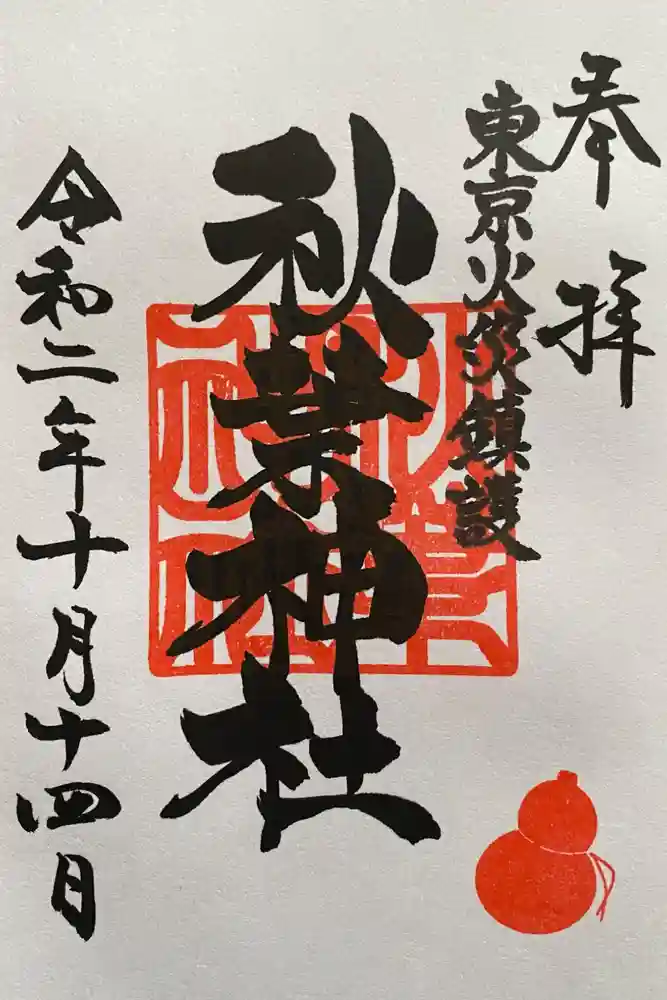 奉拝
東京火災鎮護
秋葉神社
秋葉神社
令和二年十月十四日